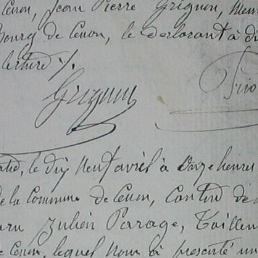 Cenon, Jean Pierre Grignon,
Bourg de Cenon, le déclarant a
lecture %.
Grignon
le dix neuf avril à onze heures
de la Commune de Cenon, Canton de
Julien
de Cenon, lequel nous a présenté un